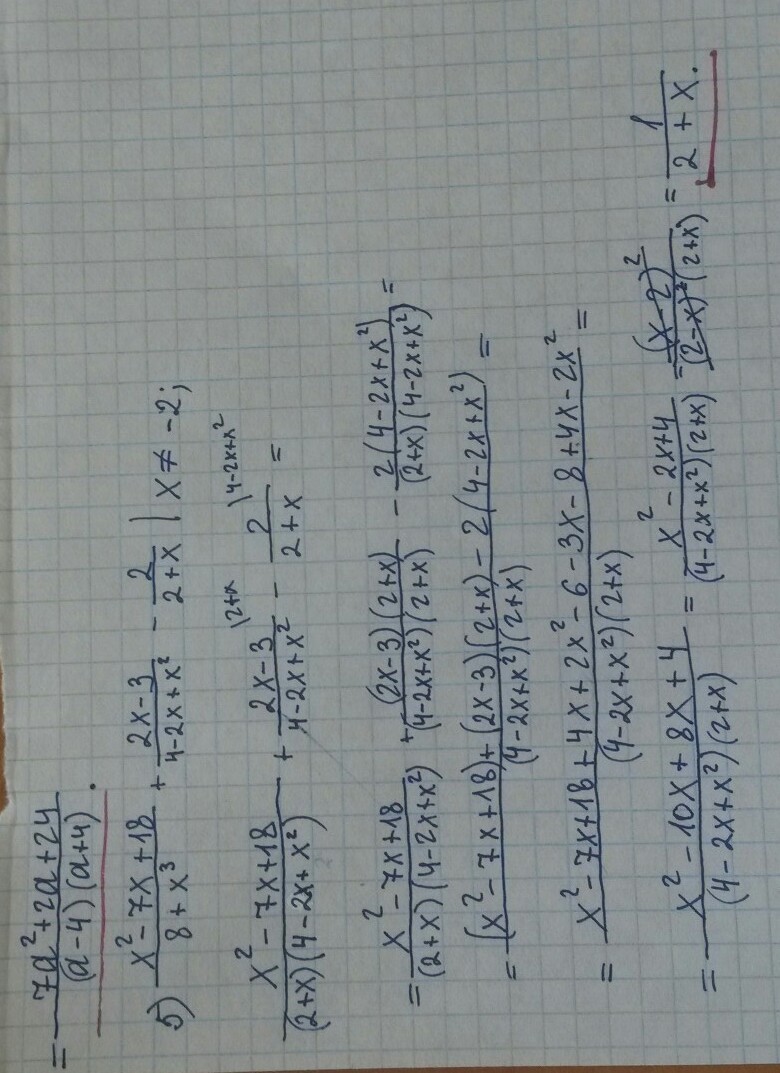 = (7a² + 2a + 24)/((a - 4)(a + 4)).
5) (x² - 7x + 18)/(8 + x³) + (2x - 3)/(4 - 2x + x²) - 2/(2 + x) | x ≠ -2;
(x² - 7x + 18)/((2 + x)(4 - 2x + x²)) + (2x - 3)/(4 - 2x + x²) |2+x - 2/(2 + x) |4-2x+x² =
= (x² - 7x + 18)/((2 + x)(4 - 2x + x²)) + ((2x - 3)(2 + x))/((4 - 2x + x²)(2 + x)) - (2(4 - 2x + x²))/((2 + x)(4 - 2x + x²)) =
= ((x² - 7x + 18) + (2x - 3)(2 + x) - 2(4 - 2x + x²))/((4 - 2x + x²)(2 + x)) =
= (x² - 7x + 18 + 4x + 2x² - 6 - 3x - 8 + 4x - 2x²)/((4 - 2x + x²)(2 + x)) =
= (x² - 10x + 8x + 4)/((4 - 2x + x²)(2 + x)) = (x² - 2x + 4)/((4 - 2x + x²)(2 + x)) = (x - 2)²/((2 - x)²(2 + x)) = 1/(2 + x).